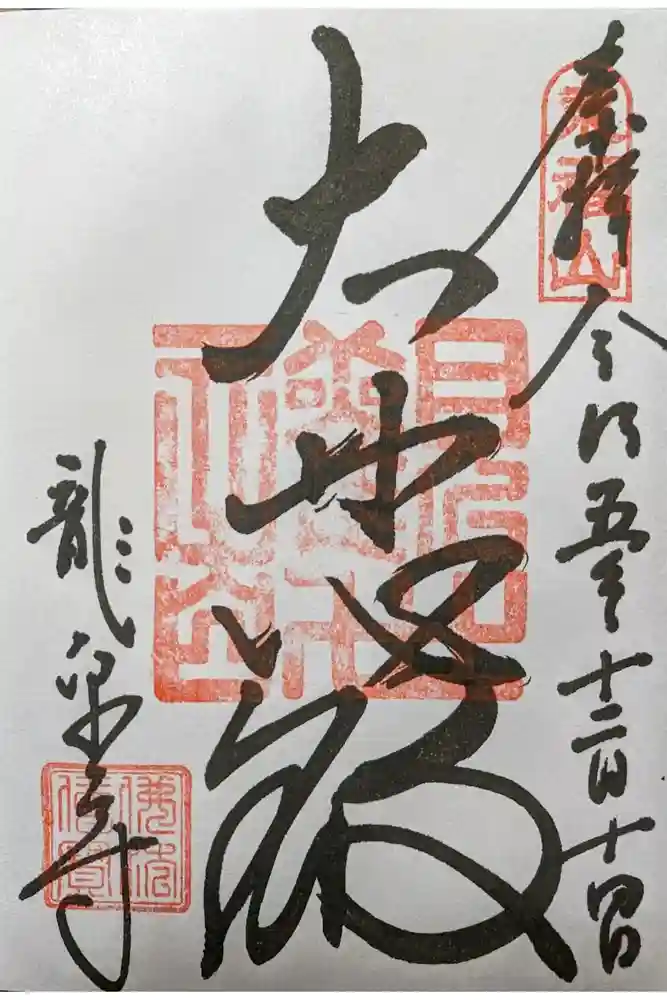 奉拝
令和五年十二月十四日
大悲殿
龍泉寺
佛法
僧寶